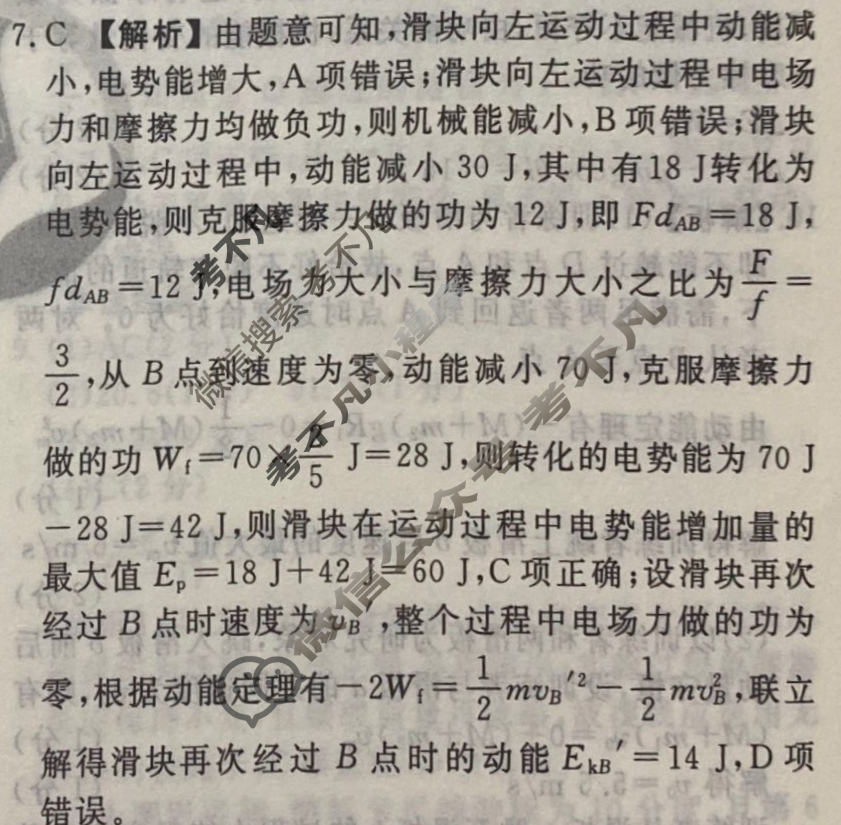 7. C 【解析】由题意可知,滑块向左运动过程中动能减
小,电势能增大,A 项错误;滑块向左运动过程中电场
力和摩擦力均做负功,则机械能减小,B 项错误;滑块
向左运动过程中,动能减小 30 J,其中有18 J转化为
电势能,则克服摩擦力做的功为 12 J,即 Fd_AB=18 J,
fd_AB=12 J,电场力大小与摩擦力大小之比为 F/f =
3/2,从 B 点到速度为零,动能减小 70 J,克服摩擦力
做的功 W_f=70×2/5 J=28 J,则转化的电势能为 70 J
-28 J=42 J,则滑块在运动过程中电势能增加量的
最大值 E_p=18 J+42 J=60 J,C 项正确;设滑块再次
经过 B 点时速度为 v_B′,整个过程中电场力做的功为
零,根据动能定理有-2W_f=1/2 mv_B′²-1/2 mv_B²,联立
解得滑块再次经过 B 点时的动能 E_kB′=14 J,D 项
错误。